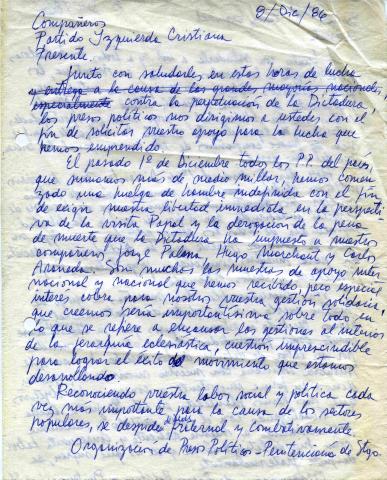 9/Dic/86
Compañeros
Partido Izquierda Cristiana
Presente.
Junto con saludarles en estas horas de lucha
y entrega a la causa de las grandes mayorías nacionales,
especialmente contra la perpetuación de la Dictadura,
los presos políticos nos dirigimos a ustedes con el
fin de solicitar vuestro apoyo para la lucha que
hemos emprendido.
El pasado 1º de Diciembre todos los P.P. del país,
que sumamos más de medio millar, hemos comen-
zado una huelga de hambre indefinida con el fin
de exigir nuestra libertad inmediata en la perspecti-
va de la visita Papal y la derogación de la pena
de muerte que la Dictadura ha impuesto a nuestros
compañeros Jorge Palma, Hugo Marchant y Carlos
Araneda. Son muchas las muestras de apoyo inter
nacional y nacional que hemos recibido, pero especial
interés cobra para nosotros vuestra gestión solidaria,
que creemos sería importantísima sobre todo en
lo que se refiere a encausar las gestiones al interior
de la jerarquía eclesiástica, cuestión imprescindible
para lograr el éxito del movimiento que estamos
desarrollando.
Reconociendo vuestra labor social y política cada
vez más importante para la causa de los sectores
populares, se despide fraternal y combativamente
Organización de Presos Políticos - Penitenciaria de Stgo.